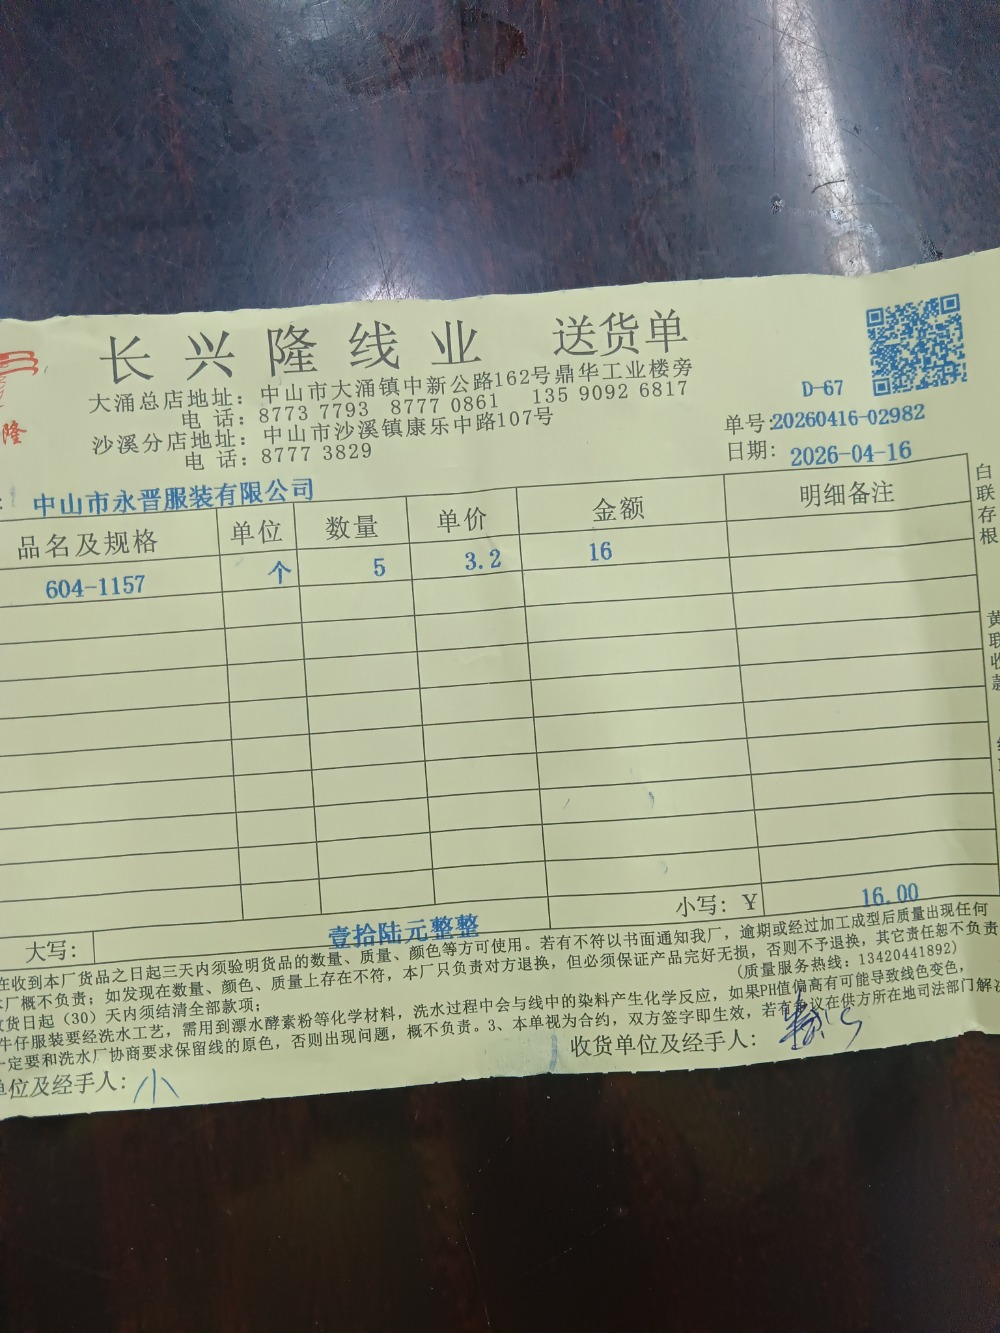 长兴隆线业 送货单
隆
大涌总店地址：中山市大涌镇中新公路162号鼎华工业楼旁
电 话：8773 7793 8777 0861 135 9092 6817
沙溪分店地址：中山市沙溪镇康乐中路107号
电 话：8777 3829
D-67
单号:20260416-02982
日期：2026-04-16
：中山市永晋服装有限公司
品名及规格 单位 数量 单价 金额 明细备注
604-1157 个 5 3.2 16
大写： 壹拾陆元整整 小写：￥ 16.00
在收到本厂货品之日起三天内须验明货品的数量、质量、颜色等方可使用。若有不符以书面通知我厂，逾期或经过加工成型后质量出现任何
厂概不负责；如发现在数量、颜色、质量上存在不符，本厂只负责对方退换，但必须保证产品完好无损，否则不予退换，其它责任恕不负责
(质量服务热线：13420441892)
货日起（30）天内须结清全部款项；
牛仔服装要经洗水工艺，需用到漂水酵素粉等化学材料，洗水过程中会与线中的染料产生化学反应，如果PH值偏高有可能导致线色变色，
一定要和洗水厂协商要求保留线的原色，否则出现问题，概不负责。3、本单视为合约，双方签字即生效，若有争议在供方所在地司法部门解决
单位及经手人：小
收货单位及经手人：
白联存根
黄联收款